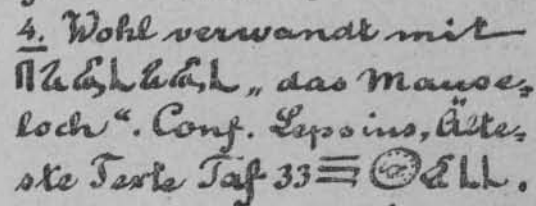 4. Wohl verwandt mit
„das Mause⸗
loch“. Conf. Lepsius, Älte⸗
ste Texte Taf 33